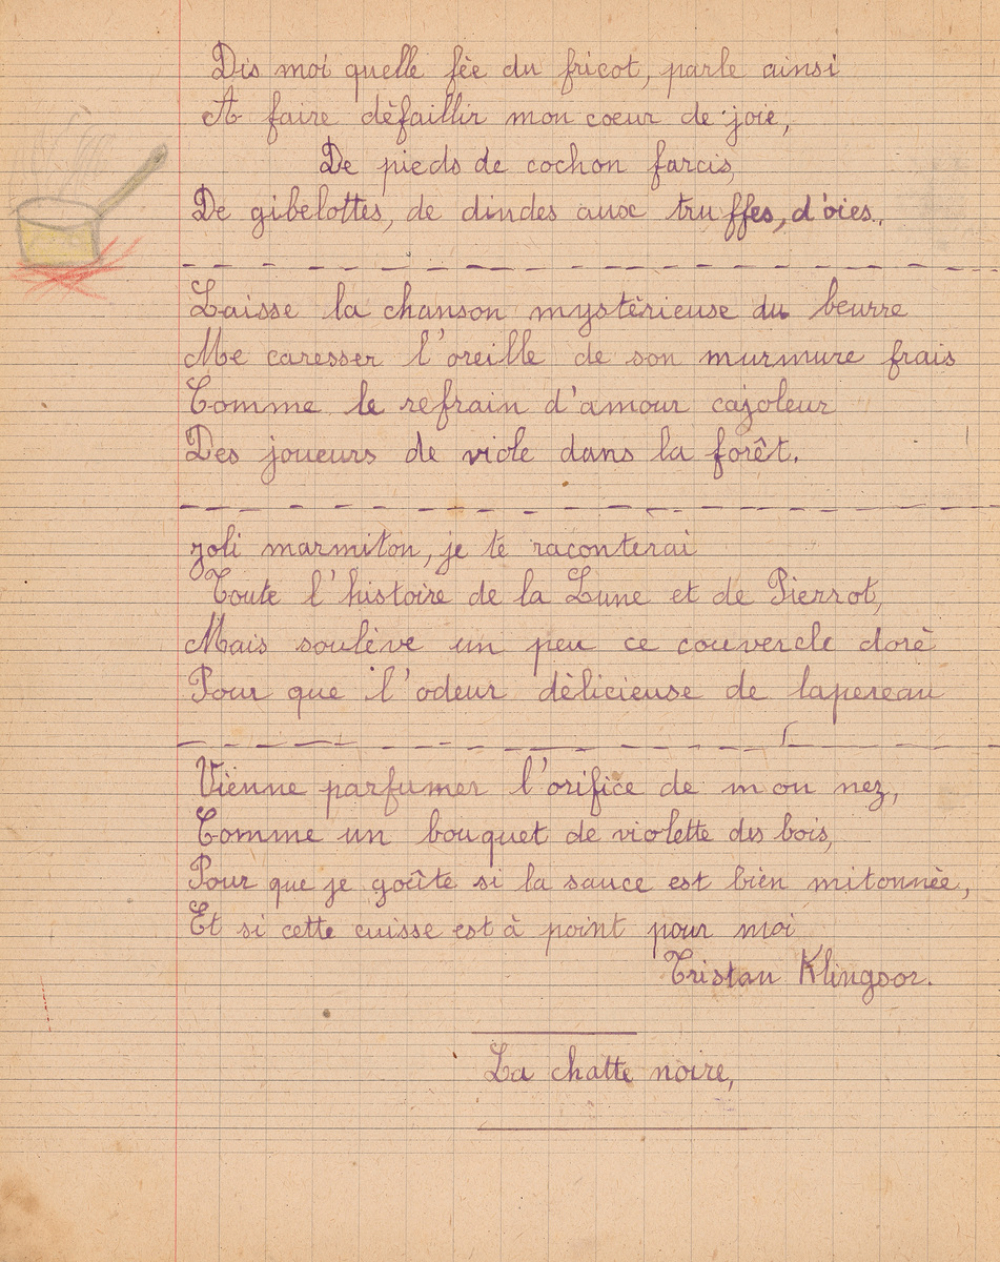 Dis moi quelle fée du fricot, parle ainsi
A faire défaillir mon coeur de joie,
De pieds de cochon farcis,
De gibelottes, de dindes aux truffes, d'oies..
Laisse la chanson mystérieuse du beurre
Me caresser l'oreille de son murmure frais
Comme le refrain d'amour cajoleur
Des joueurs de viole dans la forêt.
Joli marmiton, je te raconterai
Toute l'histoire de la Lune et de Pierrot,
Mais soulève un peu ce couvercle doré
Pour que l'odeur délicieuse de lapereau
Vienne parfumer l'orifice de mon nez,
Comme un bouquet de violette des bois,
Pour que je goûte si la sauce est bien mitonnée,
Et si cette cuisse est à point pour moi
Tristan Klingsor.
La chatte noire,